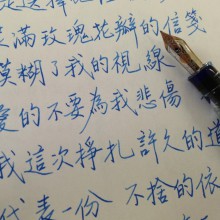 滿玫瑰花瓣的信箋
模糊了我的視線
愛的不要為我悲傷
我這次掙扎許久的
代表一份 不捨的依